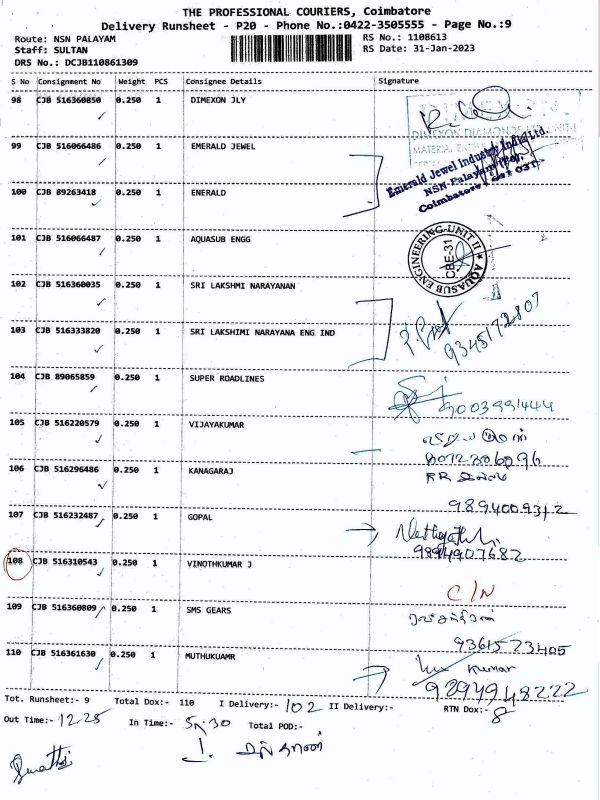 THE PROFESSIONAL COURIERS, Coimbatore
Delivery Runsheet - P20 - Phone No.:0422-3505555 - Page No.:9
Route: NSN PALAYAM
RS No.: 1108613
Staff: SULTAN
RS Date: 31-Jan-2023
DRS No.: DCJB110861309
S No Consignment No Weight PCS Consignee Details Signature
98 CJB 516360850 0.250 1 DIMEXON JLY
DIMEXON DIAMONDS
99 CJB 516066486 0.250 1 EMERALD JEWEL
Emerald Jewel Industry India Ltd.
NSN-Palayam
Coimbatore
100 CJB 89263418 0.250 1 ENERALD
101 CJB 516066487 0.250 1 AQUASUB ENGG
AQUASUB ENGINEERING-UNIT II
CBE-31
102 CJB 516360035 0.250 1 SRI LAKSHMI NARAYANAN
103 CJB 516333820 0.250 1 SRI LAKSHIMI NARAYANA ENG IND
9345172807
104 CJB 89065859 0.250 1 SUPER ROADLINES
9003991444
105 CJB 516220579 0.250 1 VIJAYAKUMAR
106 CJB 516296486 0.250 1 KANAGARAJ
9894009312
107 CJB 516232487 0.250 1 GOPAL
9894907682
108 CJB 516310543 0.250 1 VINOTHKUMAR J
C/N
109 CJB 516360809 0.250 1 SMS GEARS
9361573405
110 CJB 516361630 0.250 1 MUTHUKUAMR
Kumar
9294948222
Tot. Runsheet:- 9 Total Dox:- 110 I Delivery:- 102 II Delivery:- RTN Dox:- 8
Out Time:- 12.25 In Time:- 5.30 Total POD:-